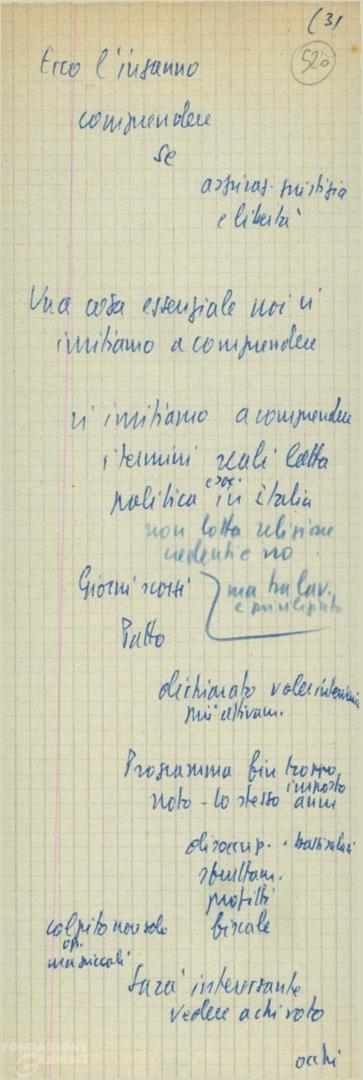 (3)
520
Ecco l'inganno
comprendere
se
aspiraz. giustizia
e libertà
Una cosa essenziale noi vi
invitiamo a comprendere
vi invitiamo a comprendere
i termini reali lotta
politica e soc. in Italia
non lotta religione
credenti e no
Giorni scorsi
ma tra lav.
e privilegiato
Patto
dichiarato voler intervenire
più attivam.
Programma ben troppo
noto - lo stesso imposto
anni
disoccup. - bassi salari
sfruttam.
profitti
fiscale
colpito non solo
op.
ma piccoli
Sarà interessante
vedere a chi voto
occhi
FONDAZIONE
GRAMSCI